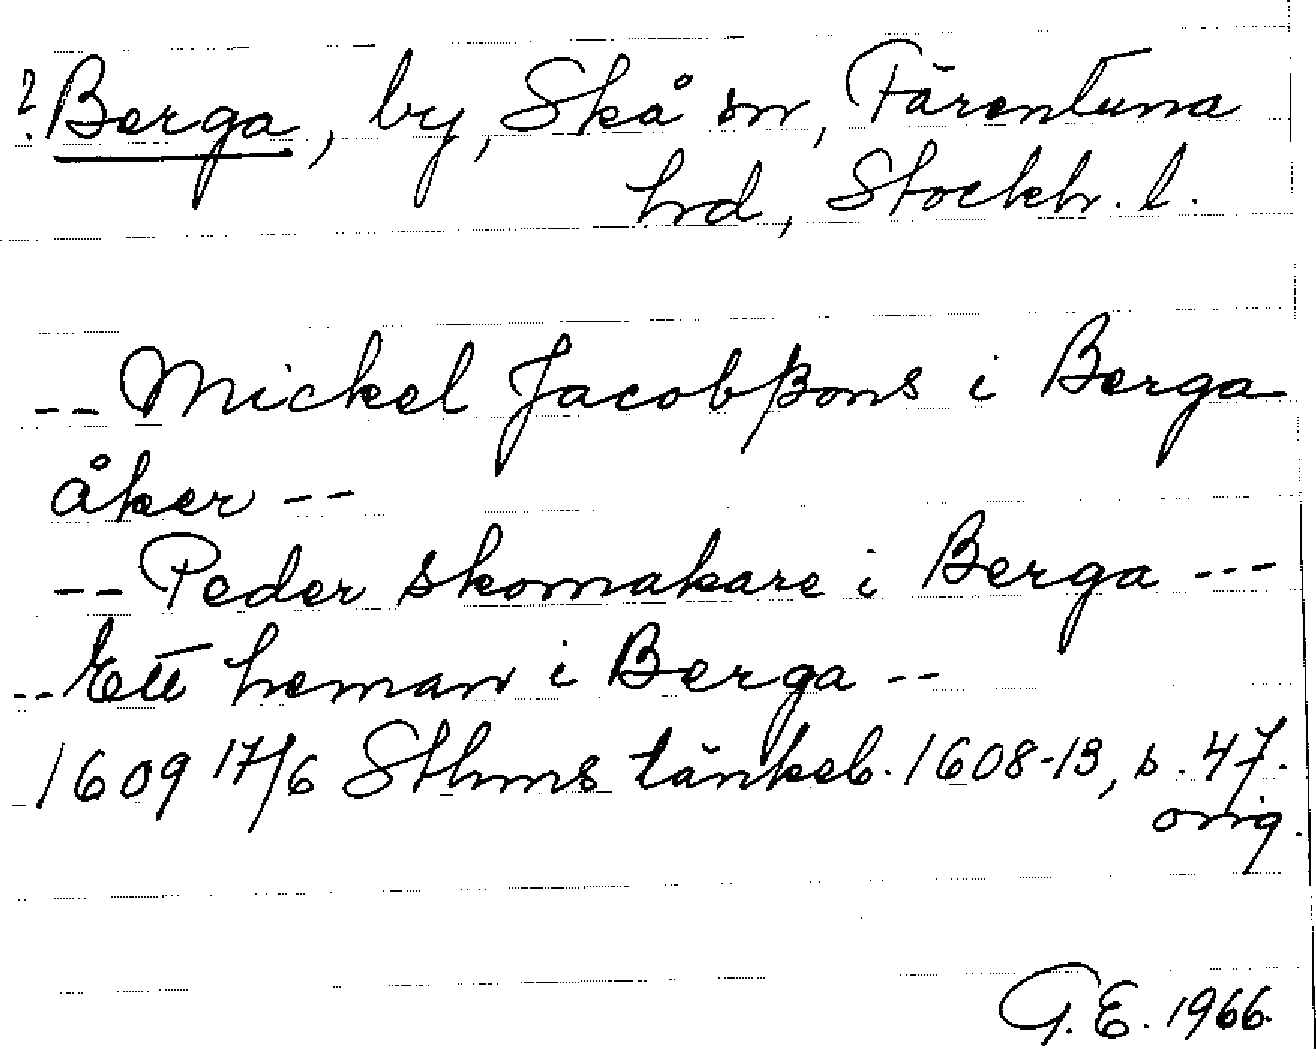 ? Berga, by, Skå sn, Färentuna
hrd, Stockh. l.
-- Mickel Jacobßons i Berga
åker --
-- Peder skomakare i Berga ---
-- Ett heman i Berga --
1609 17/6 Sthms tänkeb. 1608-13, s. 47.
orig.
G.E. 1966.